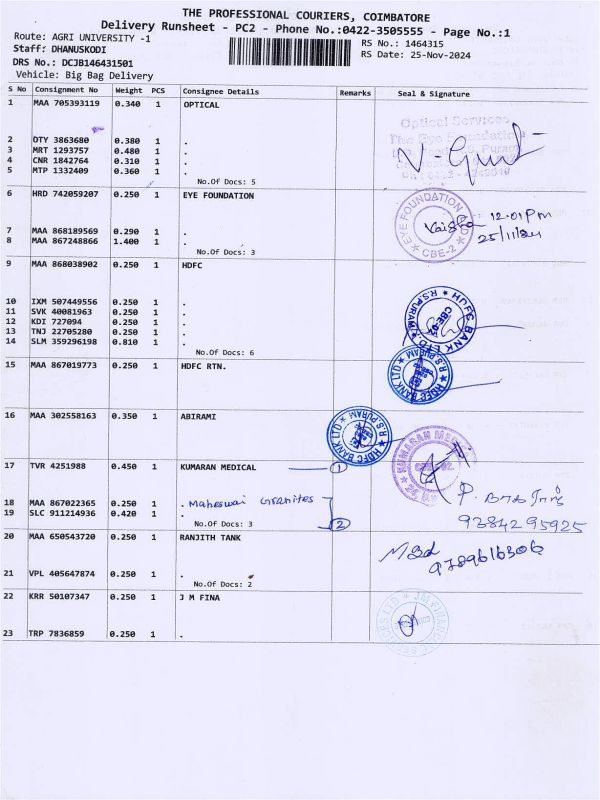 THE PROFESSIONAL COURIERS, COIMBATORE
Delivery Runsheet - PC2 - Phone No.:0422-3505555 - Page No.:1
Route: AGRI UNIVERSITY -1
RS No.: 1464315
Staff: DHANUSKODI
RS Date: 25-Nov-2024
DRS No.: DCJB146431501
Vehicle: Big Bag Delivery
S No Consignment No Weight PCS Consignee Details Remarks Seal & Signature
1 MAA 705393119 0.340 1 OPTICAL
Optical Services
The Eye Foundation
2 DTY 3863680 0.380 1 .
3 MRT 1293757 0.480 1 .
4 CNR 1842764 0.310 1 .
5 MTP 1332409 0.360 1 .
No.Of Docs: 5
6 HRD 742059207 0.250 1 EYE FOUNDATION
EYE FOUNDATION
CBE-2
12.01 Pm
25/11/24
7 MAA 868189569 0.290 1 .
8 MAA 867248866 1.400 1 .
No.Of Docs: 3
9 MAA 868038902 0.250 1 HDFC
10 IXM 507449556 0.250 1 .
11 SVK 40081963 0.250 1 .
12 KDI 727094 0.250 1 .
13 TNJ 22705280 0.250 1 .
14 SLM 359296198 0.810 1 .
No.Of Docs: 6
HDFC BANK LTD ★ R.S.PURAM ★
CBE-02
15 MAA 867019773 0.250 1 HDFC RTN.
HDFC BANK LTD ★ R.S.PURAM ★
16 MAA 302558163 0.350 1 ABIRAMI
HDFC BANK LTD ★ R.S.PURAM ★
17 TVR 4251988 0.450 1 KUMARAN MEDICAL 1
KUMARAN MED
18 MAA 867022365 0.250 1 . Maheswai Granites
19 SLC 911214936 0.420 1 .
No.Of Docs: 3 2
9384295925
20 MAA 650543720 0.250 1 RANJITH TANK
9789616306
21 VPL 405647874 0.250 1 .
No.Of Docs: 2
22 KRR 50107347 0.250 1 J M FINA
JM FINANC
23 TRP 7836859 0.250 1 .